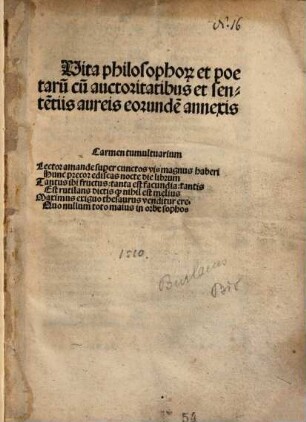 N. 16
Vita philosophoꝝ et poe
tarū cū auctoritatibus et sen⸗
tētiis aureis eorundē annexis
Carmen tumultuarium
Lector amande super cunctos vis magnus haberi
Hunc precor ediscas nocte die librum
Tantus ibi fructus: tanta est facundia: tantis
Est rutilans dictis ꝙ nihil est melius
Maximus exiguo thesaurus venditur ere:
Quo nullum toto maius in orbe sophos
1510.
Burlaeus
54